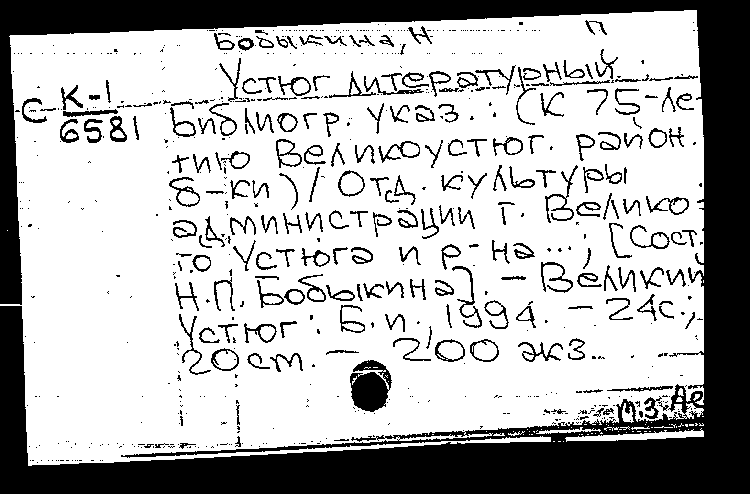 Бобыкина, Н П
Устюг литературный :
С К-1
6581
Библиогр. указ. : (К 75-ле-
тию Великоустюг. район.
б-ки) / Отд. культуры
администрации г. Велико-
го Устюга и р-на...; [Сост.
Н.П. Бобыкина]. - Великий
Устюг : Б.и., 1994. - 24с.;
20 см. - 200 экз.
М.З.